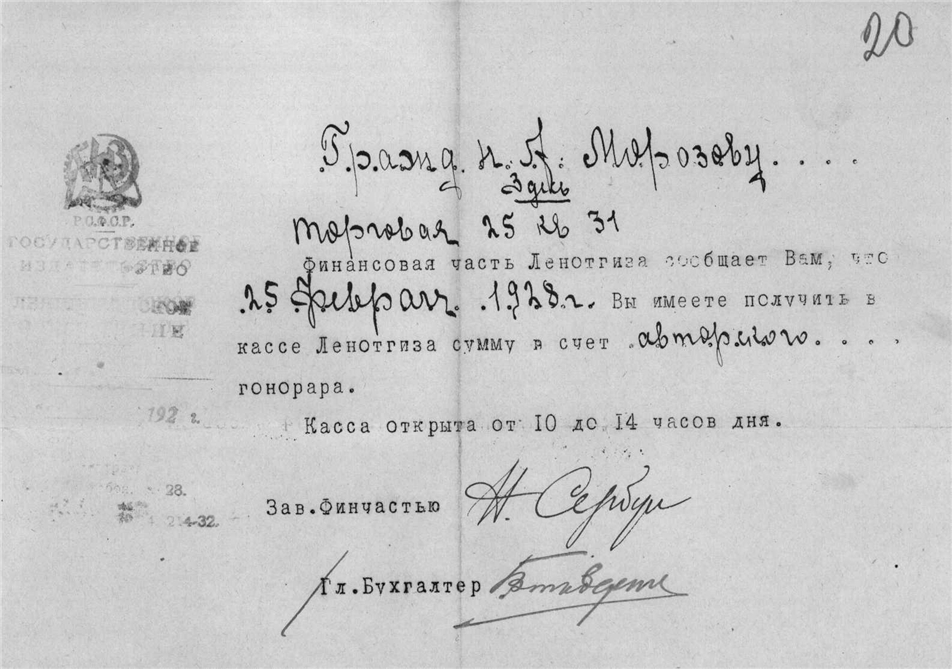 20
Гражд. Н. А. Морозову. . . .
Здесь
Торговая 25 кв 31
Р.С.Ф.С.Р.
ГОСУДАРСТВЕННОЕ
ИЗДАТЕЛЬСТВО
Финансовая часть Ленотгиза сообщает Вам, что
.25 февраля. .1928г. Вы имеете получить в
кассе Ленотгиза сумму в счет .авторского. . . .
гонорара.
192 г.
Касса открыта от 10 до 14 часов дня.
28.
Зав.Финчастью Н. Сербул
2-14-32.
Гл.Бухгалтер